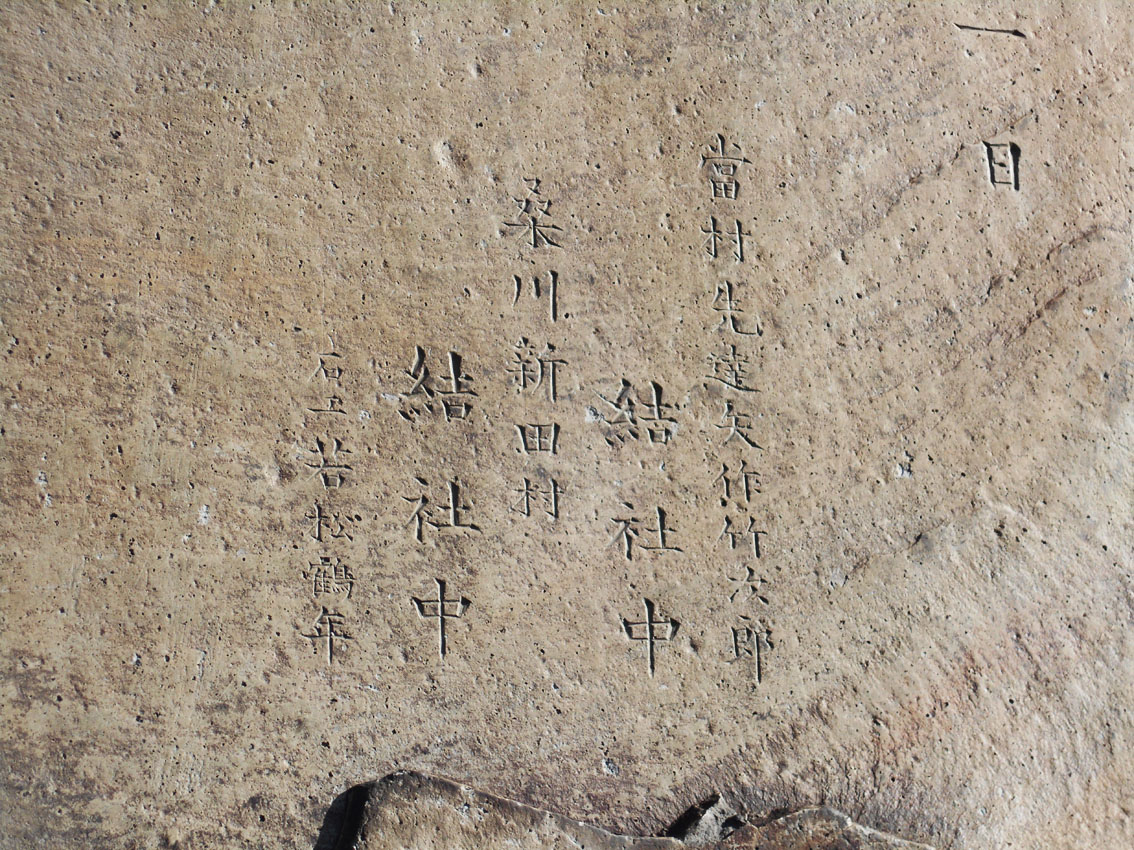 一日
當村先達矢作竹次郎
結社中
桑川新田村
結社中
石工若松鶴年